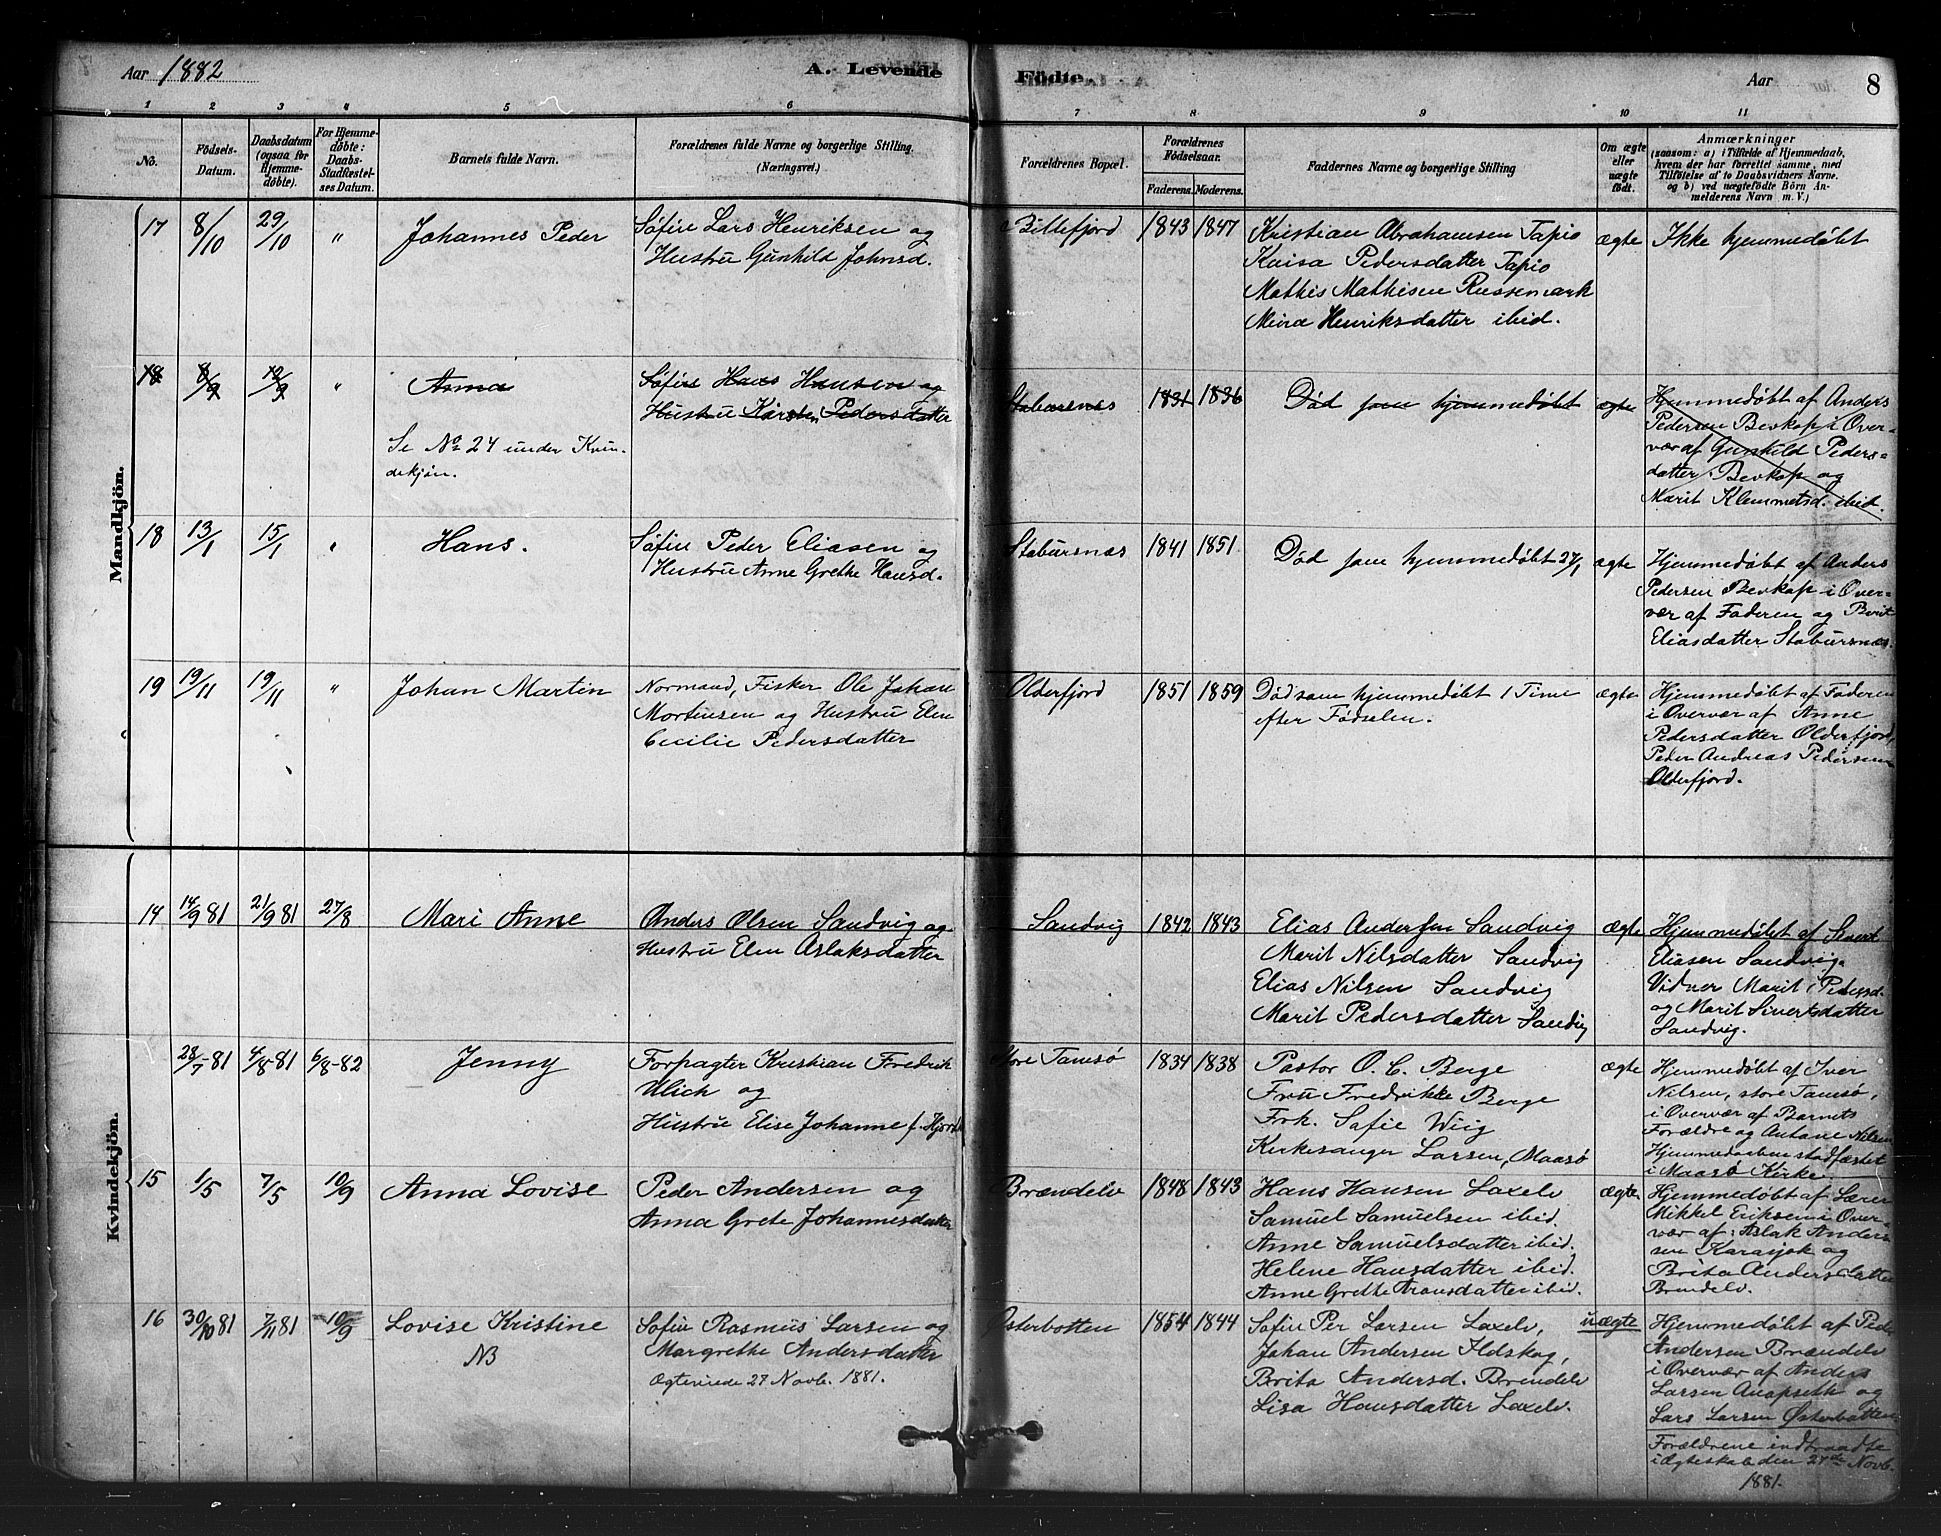 Aar 1882
A. Levende
Födte.
Aar
8
1 2 3 4 5 6 7 8 9 10 11
No.
Födsels-
Datum.
Daabsdatum
(ogsaa for
Hjemme-
döbte).
For Hjemme-
döbte:
Daabs-
Stadfæstel-
ses Datum.
Barnets fulde Navn.
Forældrenes fulde Navne og borgerlige Stilling.
(Næringsvei.)
Forældrenes Bopæl.
Forældrenes
Födselsaar.
Faderens. Moderens.
Faddernes Navne og borgerlige Stilling
Om ægte
eller
uægte
födt.
Anmærkninger
(saasom: a) i Tilfælde af Hjemmedaab,
hvem der har forrettet samme, med
Tilföielse af to Daabsvidners Navne.
og b) ved uægtefödte Börn An-
melderens Navn m. V.)
Mandkjön.
17 8/10 29/10 " Johannes Peder
Søfin Lars Henriksen og
Hustru Gunhild Johnsd.
Billefjord 1843 1847
Kristian Abrahamsen Tapio
Kaisa Pedersdatter Tapio
Mathis Mathisen Russemark
Henriksdatter ibid.
ægte
Ikke hjemmedøbt
18 8/9 12/9 " Anna
Se No 24 under Kvin-
dekjøn.
Søfin Hans Hansen og
Hustru Kirsten Pedersdatter
Stabursnes 1831 1836
Død som hjemmedøbt
ægte
Hjemmedøbt af Anders
Pedersen Bevkop i Over-
vær af Gunhild Peders-
datter Bevkop og
Marit Klemmetsd. ibid.
18 13/1 15/1 " Hans.
Søfin Peder Eliasen og
Hustru Anne Grethe Hansd.
Stabursnæs 1841 1851
Død som hjemmedøbt 27/1
ægte
Hjemmedøbt af Anders
Pedersen Bevkop i Over-
vær af Faderen og Berit
Eliasdatter Stabursnæs.
19 19/11 19/11 " Johan Martin
Normand, Fisker Ole Johan
Mortensen og Hustru Elen
Cecilie Pedersdatter
Olderfjord 1851 1859
Død som hjemmedøbt 1 Time
efter Fødselen.
ægte
Hjemmedøbt af Faderen
i Overvær af Anne
Pedersdatter Olderfjord,
Peder Andreas Pedersen
Olderfjord.
Kvindekjön.
14 14/9 81 21/9 81 27/8 Mari Anne
Anders Olsen Sandvig og
Hustru Elen Aslaksdatter
Sandvig 1842 1843
Elias Andersen Sandvig
Marit Nilsdatter Sandvig
Elias Nilsen Sandvig
Marit Pedersdatter Sandvig
ægte
Hjemmedøbt af Sivert
Eliasen Sandvig.
Vidner Marit Pedersd.
og Marit Sivertsdatter
Sandvig.
28/7-81 4/8-81 6/8-82 Jenny
Forpagter Kristian Fredrik
Ulich og
Hustru Elise Johanne f. Hjorth
Store Tamsø 1834 1838
Pastor O. C. Berge
Fru Fredrikke Berge
Frk. Safie Wiig
Kirkesanger Larsen, Maasø
ægte
Hjemmedøbt af Iver
Nilsen, store Tamsø,
i Overvær af Barnets
Forældre og Antane Nilsen
Hjemmedaaben stadfæstet
i Maasø Kirke.
15 1/5 7/5 10/9 Anna Lovise
Peder Andersen og
Anna Grete Johannesdatter
Brændelv 1848 1843
Hans Hansen Laxelv
Samuel Samuelsen ibid.
Anne Samuelsdatter ibid.
Helene Hansdatter ibid.
Anne Grethe Aronsdatter ibid.
ægte
Hjemmedøbt af Lærer
Mikkel Eriksen i Over-
vær af: Aslak Anders-
sen Karasjok og
Brita Andersdatter
Brendelv.
16 30/10 81 7/11 81 10/9 Lovise Kristine
NB
Søfin Rasmus Larsen og
Margrethe Andersdatter
Ægteviede 27 Novb. 1881.
Østerbotten 1854 1844
Søfin Per Larsen Laxelv,
Johan Andersen Ildskog,
Brita Andersd. Brendelv
Lisa Hansdatter Laxelv.
uægte
Hjemmedøbt af Peder
Andersen Brændelv
i Overvær af Anders
Larsen Anopseth og
Lars Larsen Østerbotten
Forældrene indtraadte
i Ægteskab den 27de Novb.
1881.